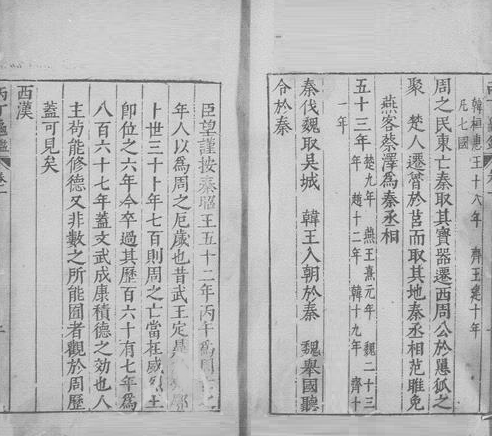 韓桓惠王十八年 齊王建十年
凡七國
周之民東亡秦取其寶器遷西周公於𢠸狐之
聚 楚人遷魯於莒而取其地秦丞相范雎免
燕客蔡澤為秦丞相
五十三年楚九年 燕王喜元年 魏二十三
年 趙十二年 韓十九年 齊十
一年
秦伐魏取吴城 韓王入朝於秦 魏舉國聽
令於秦
丙丁龜鑑 卷一
臣望謹按秦昭王五十二年丙午為周
年人以為周之厄歲也昔武王定是
卜世三十卜年七百則周之亡當在威烈王
卽位之六年今卒過其歷百六十有七年為
八百六十七年蓋文武成康積德之効也人
主茍能修德又非數之所能囿者觀於周歷
蓋可見矣
西漢